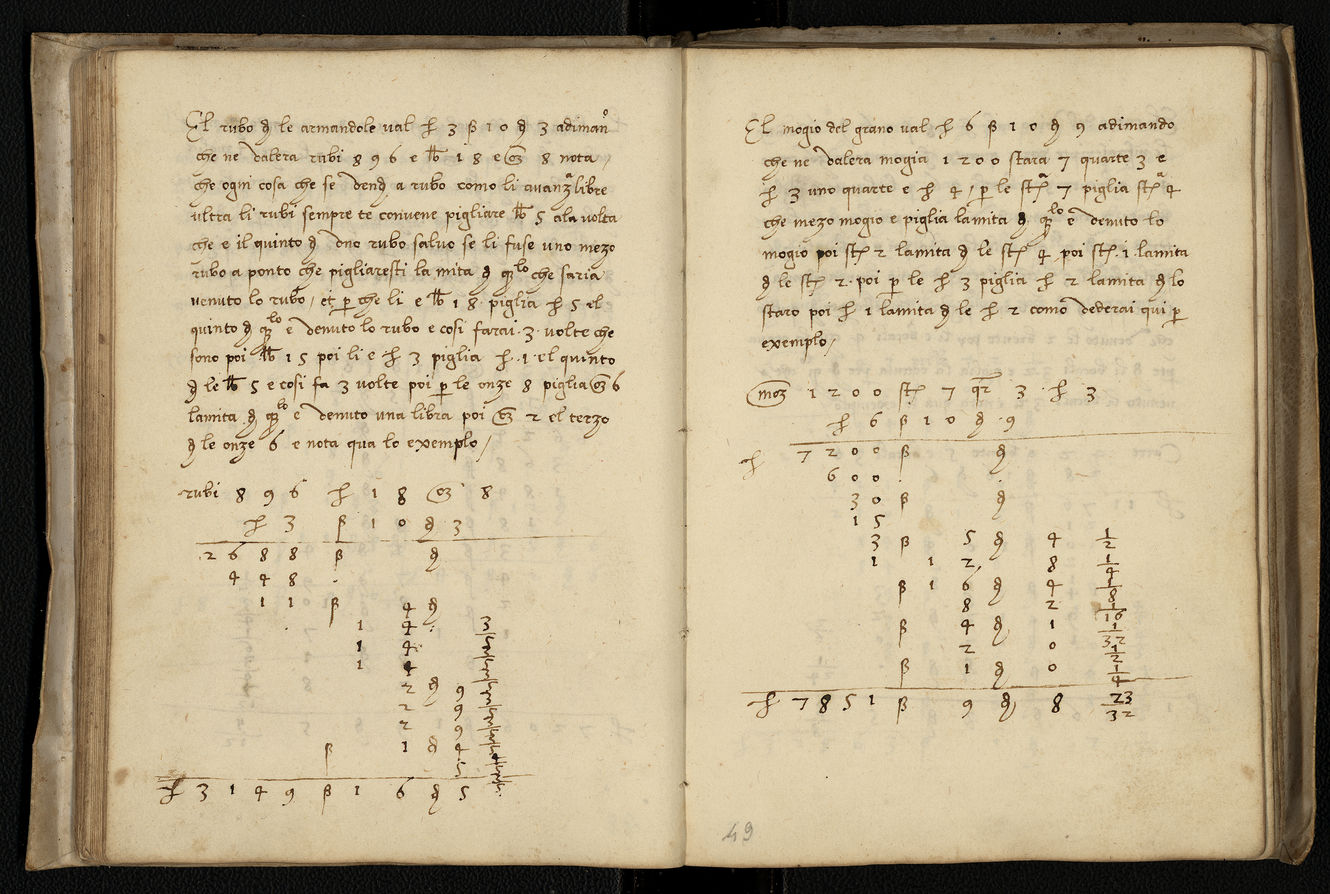 El rubo ꝺ le armandole val ₤ 3 ß 1 0 ꝺ 3 adimanº
che ne dalera rubi 8 9 6 e lb 1 8 e oz 8 nota /
che ogni cosa che se dend a rubo como li avanza libre
ultra li rubi sempre te convene pigliare lb 5 ala volta
che e il quinto ꝺ uno rubo salvo se li fuse uno mezo
rubo a ponto che pigliaresti la mita ꝺ qlo che saria
venuto lo rubo / et p che li e lb 1 8 piglia ₤ 5 el
quinto ꝺ qlo e denuto lo rubo e cosi farai · 3 · volte che
sono poi lb 1 5 poi li e ₤ 3 piglia ₤ · 1 · el quinto
ꝺ le lb 5 e cosi fa 3 volte poi p le onze 8 piglia oz 6
lamita ꝺ qlo e denuto una libra poi oz 2 el terzo
ꝺ le onze 6 e nota qua lo exemplo /
rubi 8 9 6 ₤ 1 8 oz 8
₤ 3 ß 1 0 ꝺ 3
2 6 8 8 ß ꝺ
4 4 8 ·
1 1 ß 4 ꝺ
1 4 ·
1 4
1 4
2 ꝺ 9
2 9
2 9
ß 1 ꝺ 4
₤ 3 1 4 9 ß 1 6 ꝺ 5
El mogio del grano val ₤ 6 ß 1 0 ꝺ 9 adimando
che ne dalera mogia 1 2 0 0 stara 7 quarte 3 e
₤ 3 uno quarte e ₤ 4 / p le stª 7 piglia stª 4
che mezo mogio e piglia lamita ꝺ qlo e denuto lo
mogio poi st 2 lamita ꝺ le st 4 poi st · 1 · lamita
ꝺ le st 2 · poi p le ₤ 3 piglia ₤ 2 lamita ꝺ lo
staro poi ₤ 1 lamita ꝺ le ₤ 2 como dederai qui p
exemplo /
moz 1 2 0 0 st 7 qr 3 · ₤ 3
₤ 6 ß 1 0 ꝺ · 9
₤ 7 2 0 0 ß ꝺ
6 0 0 ·
3 0 ß ꝺ
1 5
3 ß 5 ꝺ 4 1/2
1 1 2 8 1/4
ß 1 6 ꝺ 4 1/8
8 2 1/16
ß 4 ꝺ 1 1/32
2 0 1/2
ß 1 ꝺ 0 1/4
₤ 7 8 5 1 ß 9 ꝺ 8 23/32
49